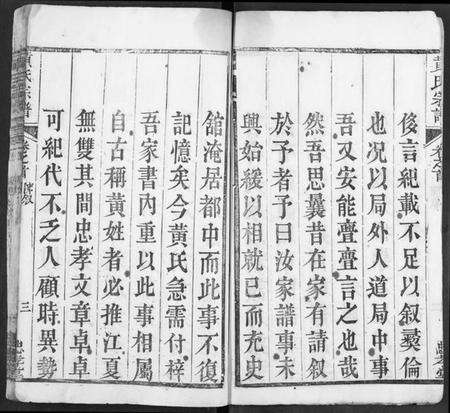 黃氏宗譜
卷之首
俊言紀載不足以叙彞倫
也况以局外人道局中事
吾又安能亹亹言之也哉
然吾思曩昔在家有請叙
於予者予曰汝家譜事未
興始緩以相就已而充史
舘淹居都中而此事不復
記憶矣今黃氏急需付梓
吾家書內重以此事相屬
自古稱黃姓者必推江夏
無雙其間忠孝文章卓卓
可紀代不乏人顧時異勢
黃氏宗譜
卷之首
三